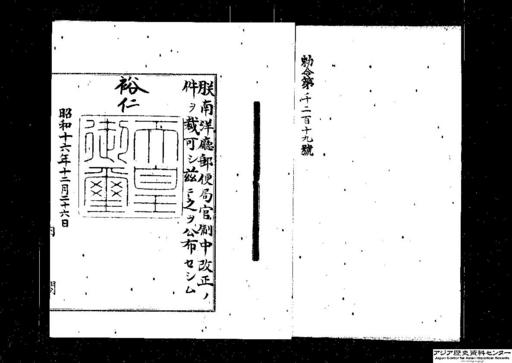 勅令第千二百十九號
朕南洋廳郵便局官制中改正ノ
件ヲ裁可シ茲ニ之ヲ公布セシム
裕仁
天皇
御璽
昭和十六年十二月二十六日
内閣
アジア歴史資料センター
Japan Center for Asian Historical Records